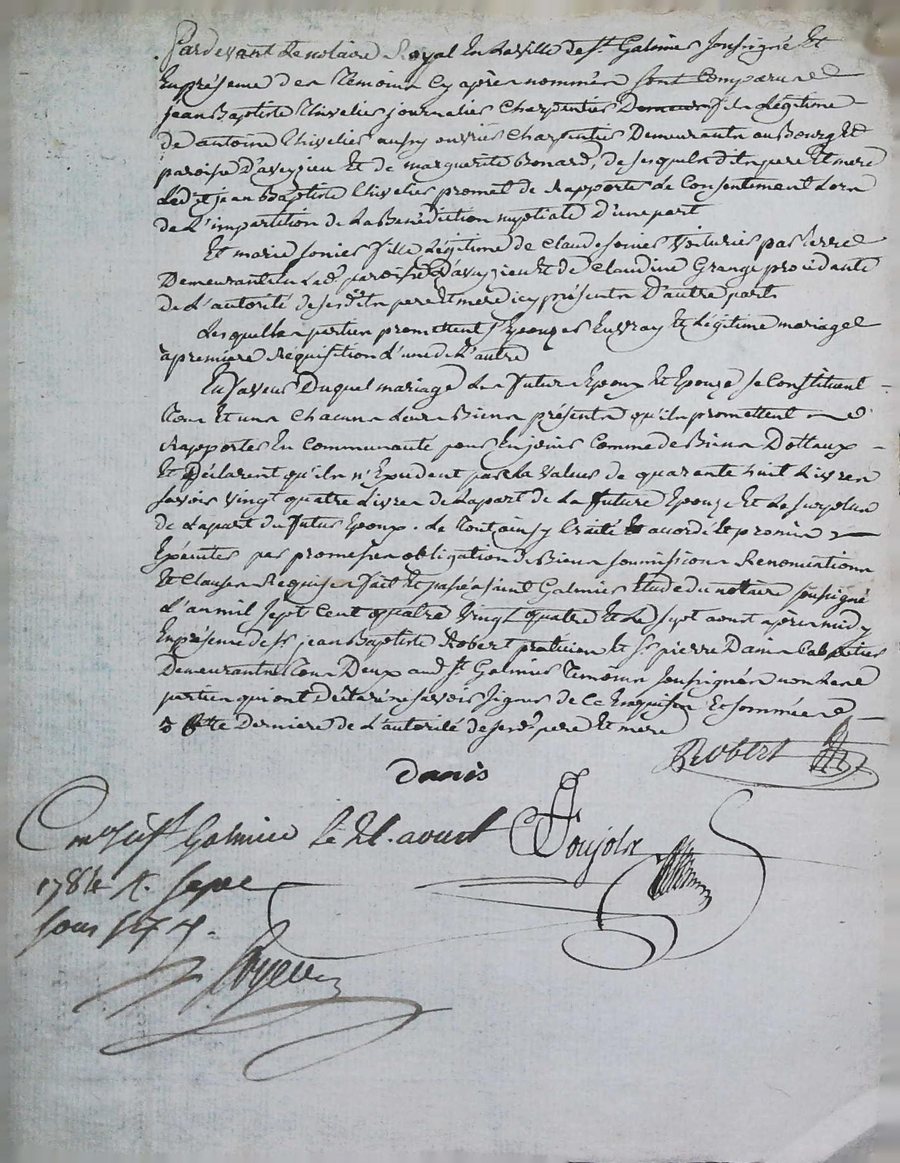 Pardevant Le notaire Royal En La ville de St Galmier soussigné Et
En présence des Temoins Cy après nommés sont Comparus
jean Baptiste Thivelier journalier Charpentier fils Légitime
de antoine Thivelier aussy ouvrier Charpentier Demeurants au Bourg Et
paroisse D'aveyzieu Et de marguerite Bonard, de ses quels dits pere Et mere
Ledit jean Baptiste Thivelier promet de Rapporter Le Consentement Lors
de L'impartition de La Benédiction nuptiale D'une part
Et marie jonier fille Légitime de Claude jonier Voiturier par terre
Demeurant en Lade paroisse D'aveyzieu Et de Claudine Grange procédante
de L'autorité de ses dits pere Et mere icy présents D'autre part
Les quelles parties promettent S'Epouzer En vray Et Légitime mariage
à premiere Réquisition L'une de L'autre
En faveur Duquel mariage Les futurs Epoux Et Epouze se Constituent
Tous Et uns Chacuns Leurs Biens présents qu'ils promettent
Rapporter En Communauté pour En jouir Comme de Biens Dottaux
Et Déclarent qu'ils n'Excedent pas La Valeur de quarente huit Livres
savoir vingt quatre Livres de La part de La future Epouze Et Le surplus
de La part du futur Epoux. Le Tout ainsy traité Et acordé Et promis
Exécuter par promesses obligation de Biens soumissions Renonciations
Et Clauses Requises fait Et passé à saint Galmier Etude du notaire soussigné
L'an mil sept Cent quatre vingt quatre Et Le sept aoust après midy
En présence de sr jean Baptiste Robert praticien Et sr pierre Danis Cabaretier
Demeurants Tous Deux aud St Galmier Temoins soussignés non Les
parties qui ont Déclaré ne savoir signer de Ce Enquises Et sommées
Cette Derniere de L'autorité de ses ds pere Et mere
Robert
Danis
St Galmier Le 21. aoust
1784 R. sept
sous